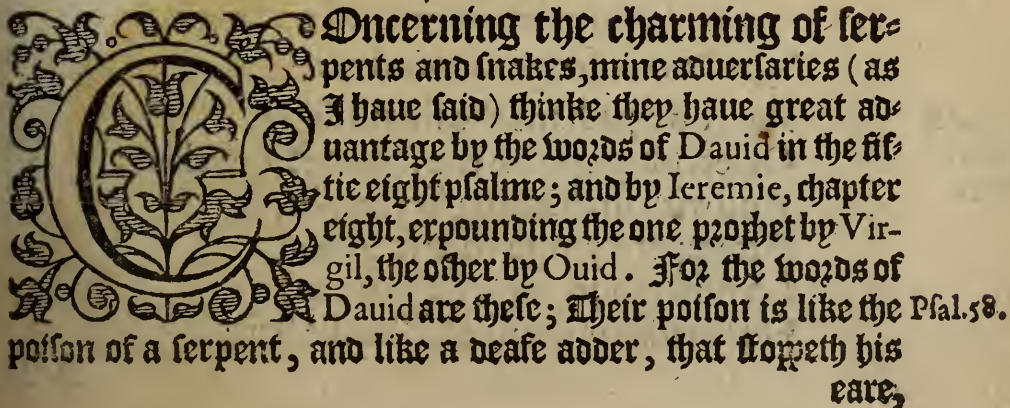 COncerning the charming of ser-
pents and snakes, mine aduersaries (as
I haue said) thinke they haue great ad-
uantage by the words of Dauid in the fif-
tie eight psalme; and by Ieremie, chapter
eight, expounding the one prophet by Vir-
gil, the other by Ouid. For the words of
Dauid are these; Their poison is like the Psal.58.
poison of a serpent, and like a deafe adder, that stoppeth his
eare,